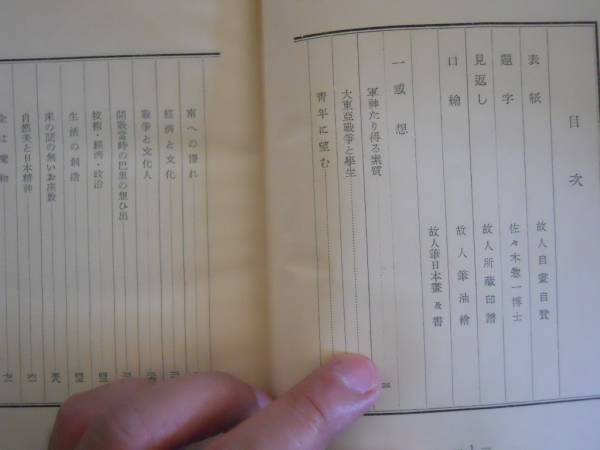 目次
表紙 故人自畫自賛
題字 佐々木惣一博士
見返し 故人所蔵印譜
口繪 故人筆油繪
故人筆日本畫及書
一 或想
軍神たり得る素質
大東亞戰爭と學生
靑年に望む
南への憧れ
經濟と文化
戰爭と文化人
開戰當時の巴里の想ひ出
技術・經濟・政治
生活の創造
床の間の無いお座敷
自然美と日本精神
金は魔物
— 1 —